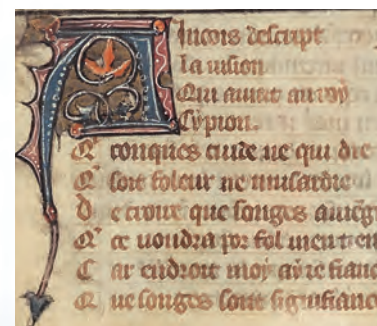 Aincois descript
la uision
Qui auint au roy
Cypion.
Qi conques cuide ne qui die
Q soit foleur ne musardie
D e croire que songes auieg
Qi ce uoudra por fol men tien
C ar endroit moy ay ie fianc
Q ue songes soit signifiance